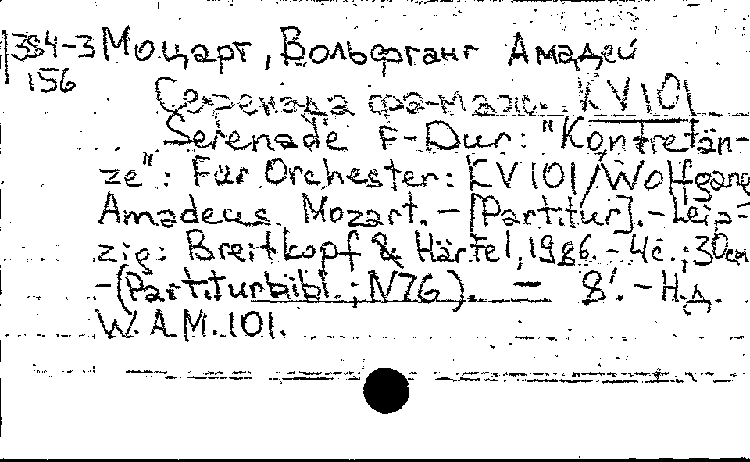 384-3 Моцарт, Вольфганг Амадей
156
Серенада фа-маж. KV 101
Serenade F-Dur: "Kontretän-
ze": Für Orchester: KV 101/Wolfgang
Amadeus Mozart. - [Partitur]. - Leip-
zig: Breitkopf & Härtel, 1986. - 4c.; 30cm
-(Partiturbibl.; N76). - 8'. - Н.д.
W. A. M. 101.